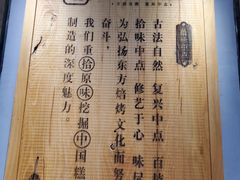 古法自然 复兴中点 百
拾味中点 修艺于心 味
为弘扬东方焙烤文化而努
奋斗，
我们重拾原味挖掘中国糕
制造的深度魅力。